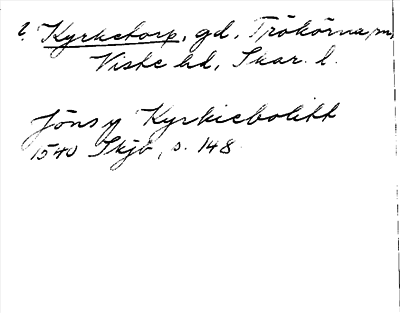 2. Kyrketorp, gd, Trökörna sn,
Viste hd, Skar. l.
Jöns y Kyrkiebolitt
1540 Skjb, s. 148